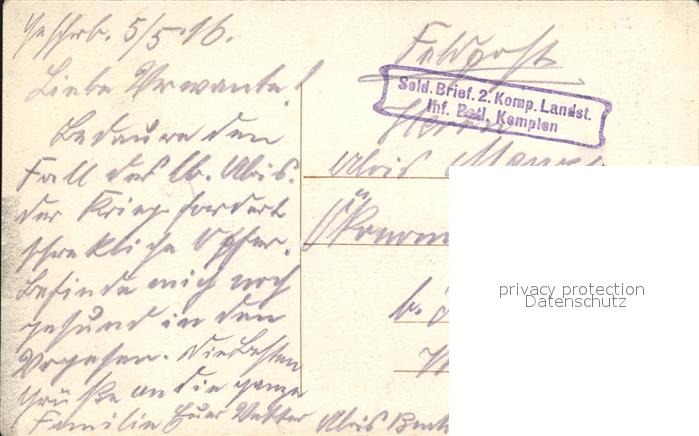 Geschrb. 5/5 16.
Liebe Verwante!
Bedaure den
Fall des lb. Alois.
der Krieg fordert
schrekliche Opfer.
Befinde mich noch
gesund in den
Vogesen. Die besten
Grüße an die ganze
Familie Euer Vetter Alois
Feldpost
Sold. Brief. 2. Komp. Landst.
Inf. Batl. Kempten
Herrn
Alois
Ökonom
b.
privacy protection
Datenschutz